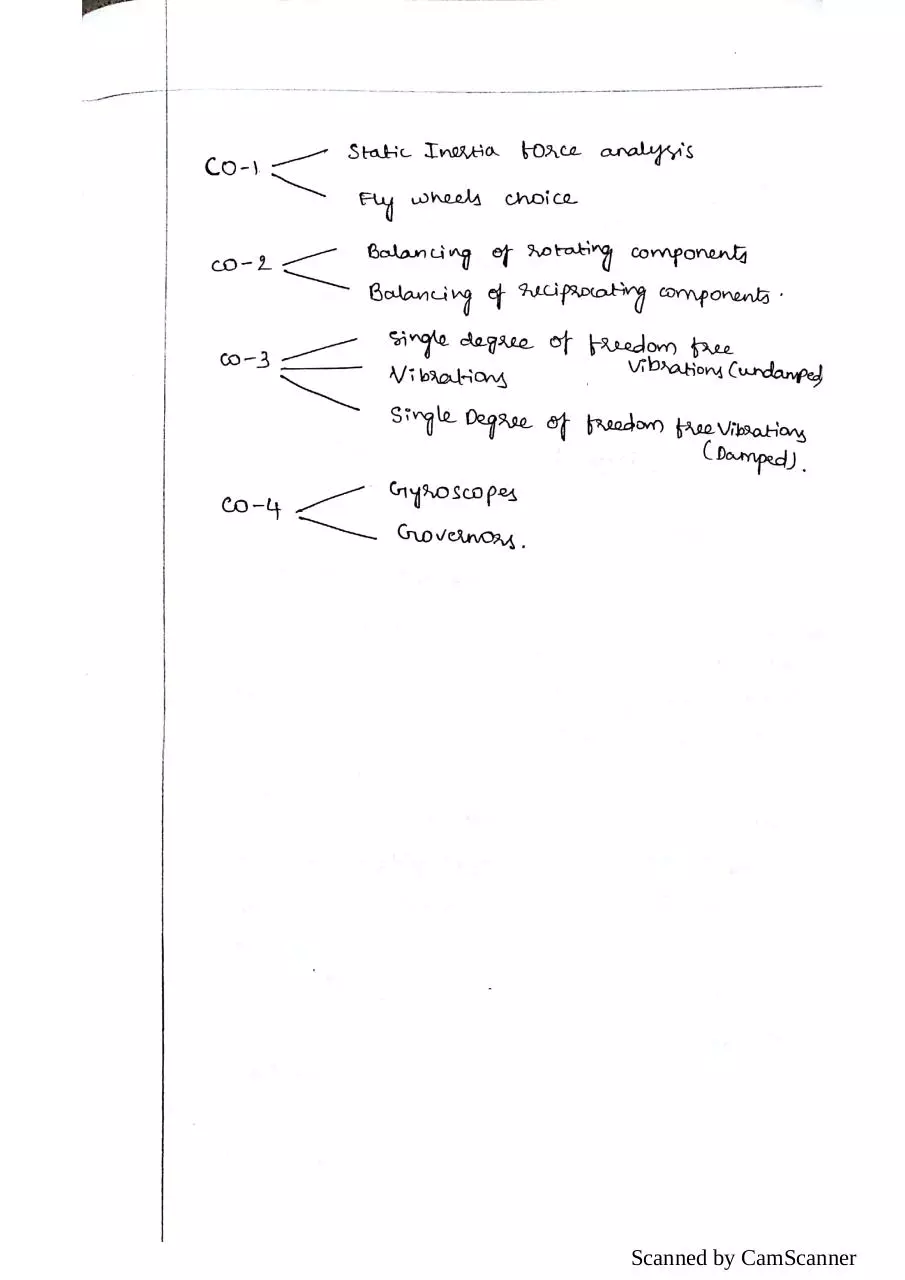 CO-1
Static Inertia force analysis
Fly wheels choice
CO-2
Balancing of rotating components
Balancing of reciprocating components.
CO-3
Single degree of freedom free
Vibrations (undamped)
Vibrations
Single Degree of freedom free Vibrations
(Damped).
CO-4
Gyroscopes
Governors.
Scanned by CamScanner